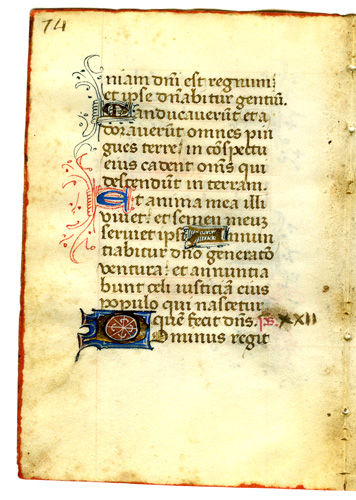 74
niam dñi est regnum:
et ipse dñabitur gentiũ.
Manducaverũt et a
doraverũt omnes pin
gues terre: in cõspectu
eius cadent omẽs qui
descendũt in terram.
Et anima mea illi
vivet: et semen meuz
serviet ipsi Annun
tiabitur dño generatio
ventura: et annuntia
bunt celi iusticiam eius
populo qui nascetur
quẽ fecit dñs. ps. XXII
Dominus regit